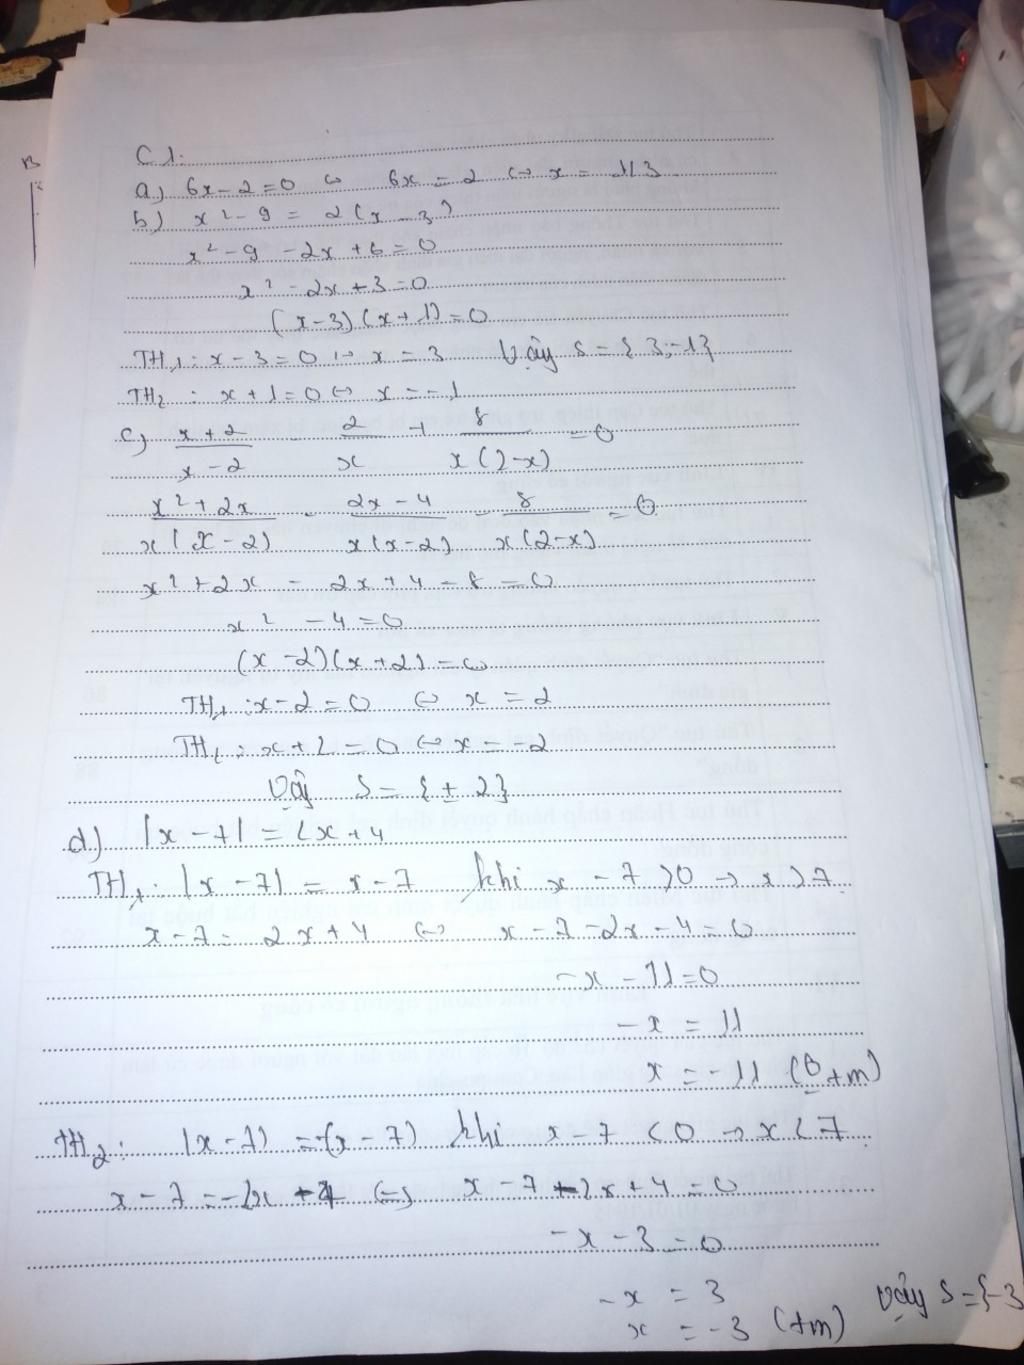 C1:
a) 6x - 2 = 0 ⇔ 6x = 2 ⇔ x = 1/3
b) x² - 9 = 2(x - 3)
x² - 9 - 2x + 6 = 0
x² - 2x + 3 = 0
(x - 3)(x + 1) = 0
TH₁: x - 3 = 0 ⇔ x = 3 Vậy S = {3; -1}
TH₂: x + 1 = 0 ⇔ x = -1
c) (x + 2)/(x - 2) - 2/x + 8/(x(2-x)) = 0
(x² + 2x)/(x(x - 2)) - (2x - 4)/(x(x-2)) - 8/(x(2-x)) = 0
x² + 2x - 2x + 4 - 8 = 0
x² - 4 = 0
(x - 2)(x + 2) = 0
TH₁: x - 2 = 0 ⇔ x = 2
TH₂: x + 2 = 0 ⇔ x = -2
Vậy S = {± 2}
d) |x - 7| = 2x + 4
TH₁: |x - 7| = x - 7 khi x - 7 > 0 → x > 7
x - 7 = 2x + 4 ⇔ x - 7 - 2x - 4 = 0
-x - 11 = 0
-x = 11
x = -11 (ktm)
TH₂: |x - 7| = -(x - 7) khi x - 7 < 0 → x < 7
x - 7 = -2x - 4 ⇔ x - 7 + 2x + 4 = 0
-x - 3 = 0
-x = 3 Vậy S = {-3
x = -3 (tm)